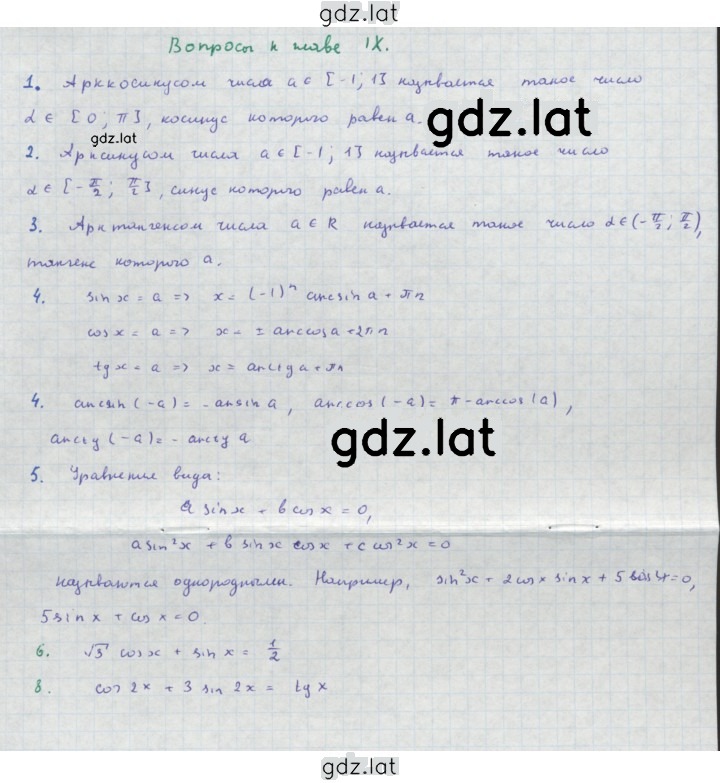 gdz.lat
Вопросы к главе IX.
1. Арккосинусом числа a ∈ [-1; 1] называется такое число
α ∈ [0; π], косинус которого равен a.
gdz.lat
gdz.lat
2. Арксинусом числа a ∈ [-1; 1] называется такое число
α ∈ [-π/2; π/2], синус которого равен a.
3. Арктангенсом числа a ∈ R называется такое число α ∈ (-π/2; π/2),
тангенс которого a.
4. sin x = a => x = (-1)ⁿ arcsin a + πn
cos x = a => x = ± arccos a + 2πn
tg x = a => x = arctg a + πn
4. arcsin (-a) = -arsin a, arccos (-a) = π - arccos (a),
arctg (-a) = - arctg a
gdz.lat
5. Уравнение вида:
a sin x + b cos x = 0,
a sin²x + b sin x cos x + c cos²x = 0
называются однородными. Например, sin²x + 2 cos x sin x + 5 = 0,
5 sin x + cos x = 0.
6. √3 cos x + sin x = 1/2
8. cos 2x + 3 sin 2x = tg x
gdz.lat